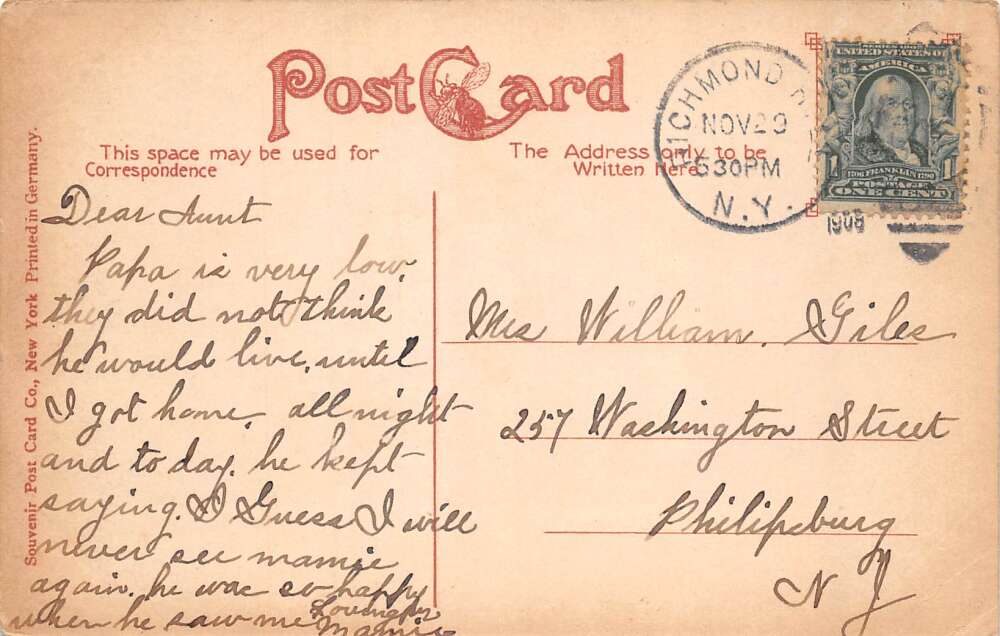 Post Card
This space may be used for
Correspondence
The Address only to be
Written Here
Souvenir Post Card Co., New York Printed in Germany.
RICHMOND
NOV 29
530PM
N.Y.
1908
SERIES 1902
UNITED STATES OF
AMERICA
1706 FRANKLIN 1790
1 POSTAGE 1
ONE CENT
Dear Aunt
Papa is very low.
they did not think
he would live, until
I got home, all night
and to day. he kept
saying. I Guess I will
never see mamie
again. he was so happy
when he saw me
Mamie
Mrs William. Giles
257 Washington Street
Philipsburg
N J